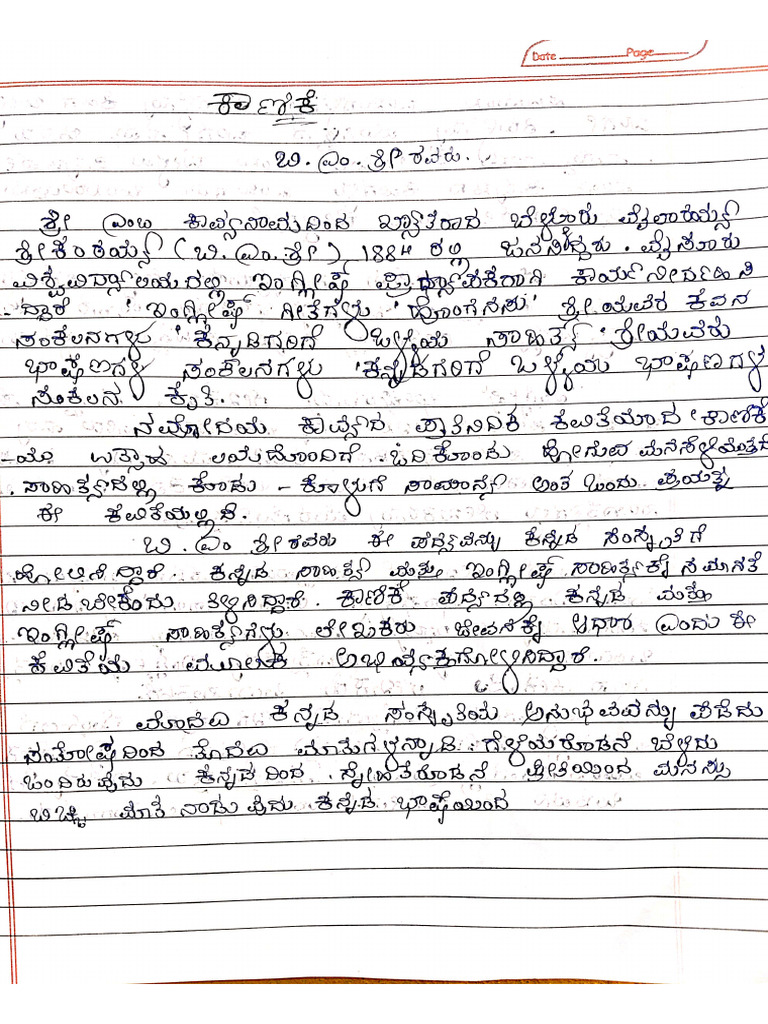 Date Page
ಕಾಣಿಕೆ
ಬಿ. ಎಂ. ಶ್ರೀ ರವರು.
ಶ್ರೀ ಎಂಬ ಕಾವ್ಯನಾಮದಿಂದ ಖ್ಯಾತರಾದ ಬೆಳ್ಳೂರು ಮೈಲಾರಯ್ಯ
ಶ್ರೀಕಂಠಯ್ಯ (ಬಿ. ಎಂ. ಶ್ರೀ) 1884 ರಲ್ಲಿ ಜನನಿಸಿದ್ದರು. ಮೈಸೂರು
ವಿಶ್ವವಿದ್ಯಾಲಯದಲ್ಲಿ ಇಂಗ್ಲೀಷ್ ಪ್ರಾಧ್ಯಾಪಕರಾಗಿ ಕಾರ್ಯನಿರ್ವಹಿಸಿ
-ದ್ದಾರೆ 'ಇಂಗ್ಲೀಷ್ ಗೀತೆಗಳು' 'ಹೊಂಗನಸು' ಶ್ರೀಯವರ ಕವನ
ಸಂಕಲನಗಳು 'ಕನ್ನಡಿಗರಿಗೆ ಒಳ್ಳೆಯ ಸಾಹಿತ್ಯ' ಶ್ರೀಯವರು
ಭಾಷಣಗಳ ಸಂಕಲನಗಳು 'ಕನ್ನಡಿಗರಿಗೆ ಒಳ್ಳೆಯ ಭಾಷಣಗಳ
ಸಂಕಲನ ಕೃತಿ.
ನವೋದಯ ಕಾವ್ಯದ ಪ್ರಾತಿನಿಧಿಕ ಕವಿತೆಯಾದ 'ಕಾಣಿಕೆ
-ಯ ಉತ್ಸಾಹ ಲಯದೊಂದಿಗೆ ಓದಿಕೊಂಡು ಹೋಗುವ
ಸಾಹಿತ್ಯದಲ್ಲಿ ಕೊಡು - ಕೊಳ್ಳುಗೆ ಸಾಮಾನ್ಯ ಅಂತ ಒಂದು ಪ್ರಯತ್ನ
ಈ ಕವಿತೆಯಲ್ಲಿದೆ.
ಬಿ. ಎಂ ಶ್ರೀ ರವರು ಈ ಪದ್ಯವನ್ನು ಕನ್ನಡ ಸಂಸ್ಕೃತಿಗೆ
ಹೋಲಿಸಿದ್ದಾರೆ. ಕನ್ನಡ ಸಾಹಿತ್ಯ ಮತ್ತು ಇಂಗ್ಲೀಷ್ ಸಾಹಿತ್ಯಕ್ಕೆ ಸಮಾನತೆ
ನೀಡಬೇಕೆಂದು ತಿಳಿಸಿದ್ದಾರೆ. ಕಾಣಿಕೆ ಪದ್ಯದಲ್ಲಿ ಕನ್ನಡ ಮತ್ತು
ಇಂಗ್ಲೀಷ್ ಸಾಹಿತ್ಯಗಳು ಲೇಖಕರು ಜೀವನಕ್ಕೆ ಆಧಾರ ಎಂದು ಈ
ಕವಿತೆಯ ಮೂಲಕ ಅಭಿವ್ಯಕ್ತಗೊಳಿಸಿದ್ದಾರೆ.
ಮೊದಲ ಕನ್ನಡ ಸಂಸ್ಕೃತಿಯ ಅನುಭವವನ್ನು ಪಡೆದು
ಸಂತೋಷದಿಂದ ತೊದಲ ಮಾತುಗಳನ್ನಾಡಿ ಗೆಳೆಯರೊಡನೆ ಬೆಳೆದು
ಬಂದಿರುವುದು ಕನ್ನಡದಿಂದ. ಸ್ನೇಹಿತರೊಡನೆ ಪ್ರೀತಿಯಿಂದ ಮನಸ್ಸು
ಬಿಚ್ಚಿ ಮಾತನಾಡುವುದು ಕನ್ನಡ ಭಾಷೆಯಿಂದ